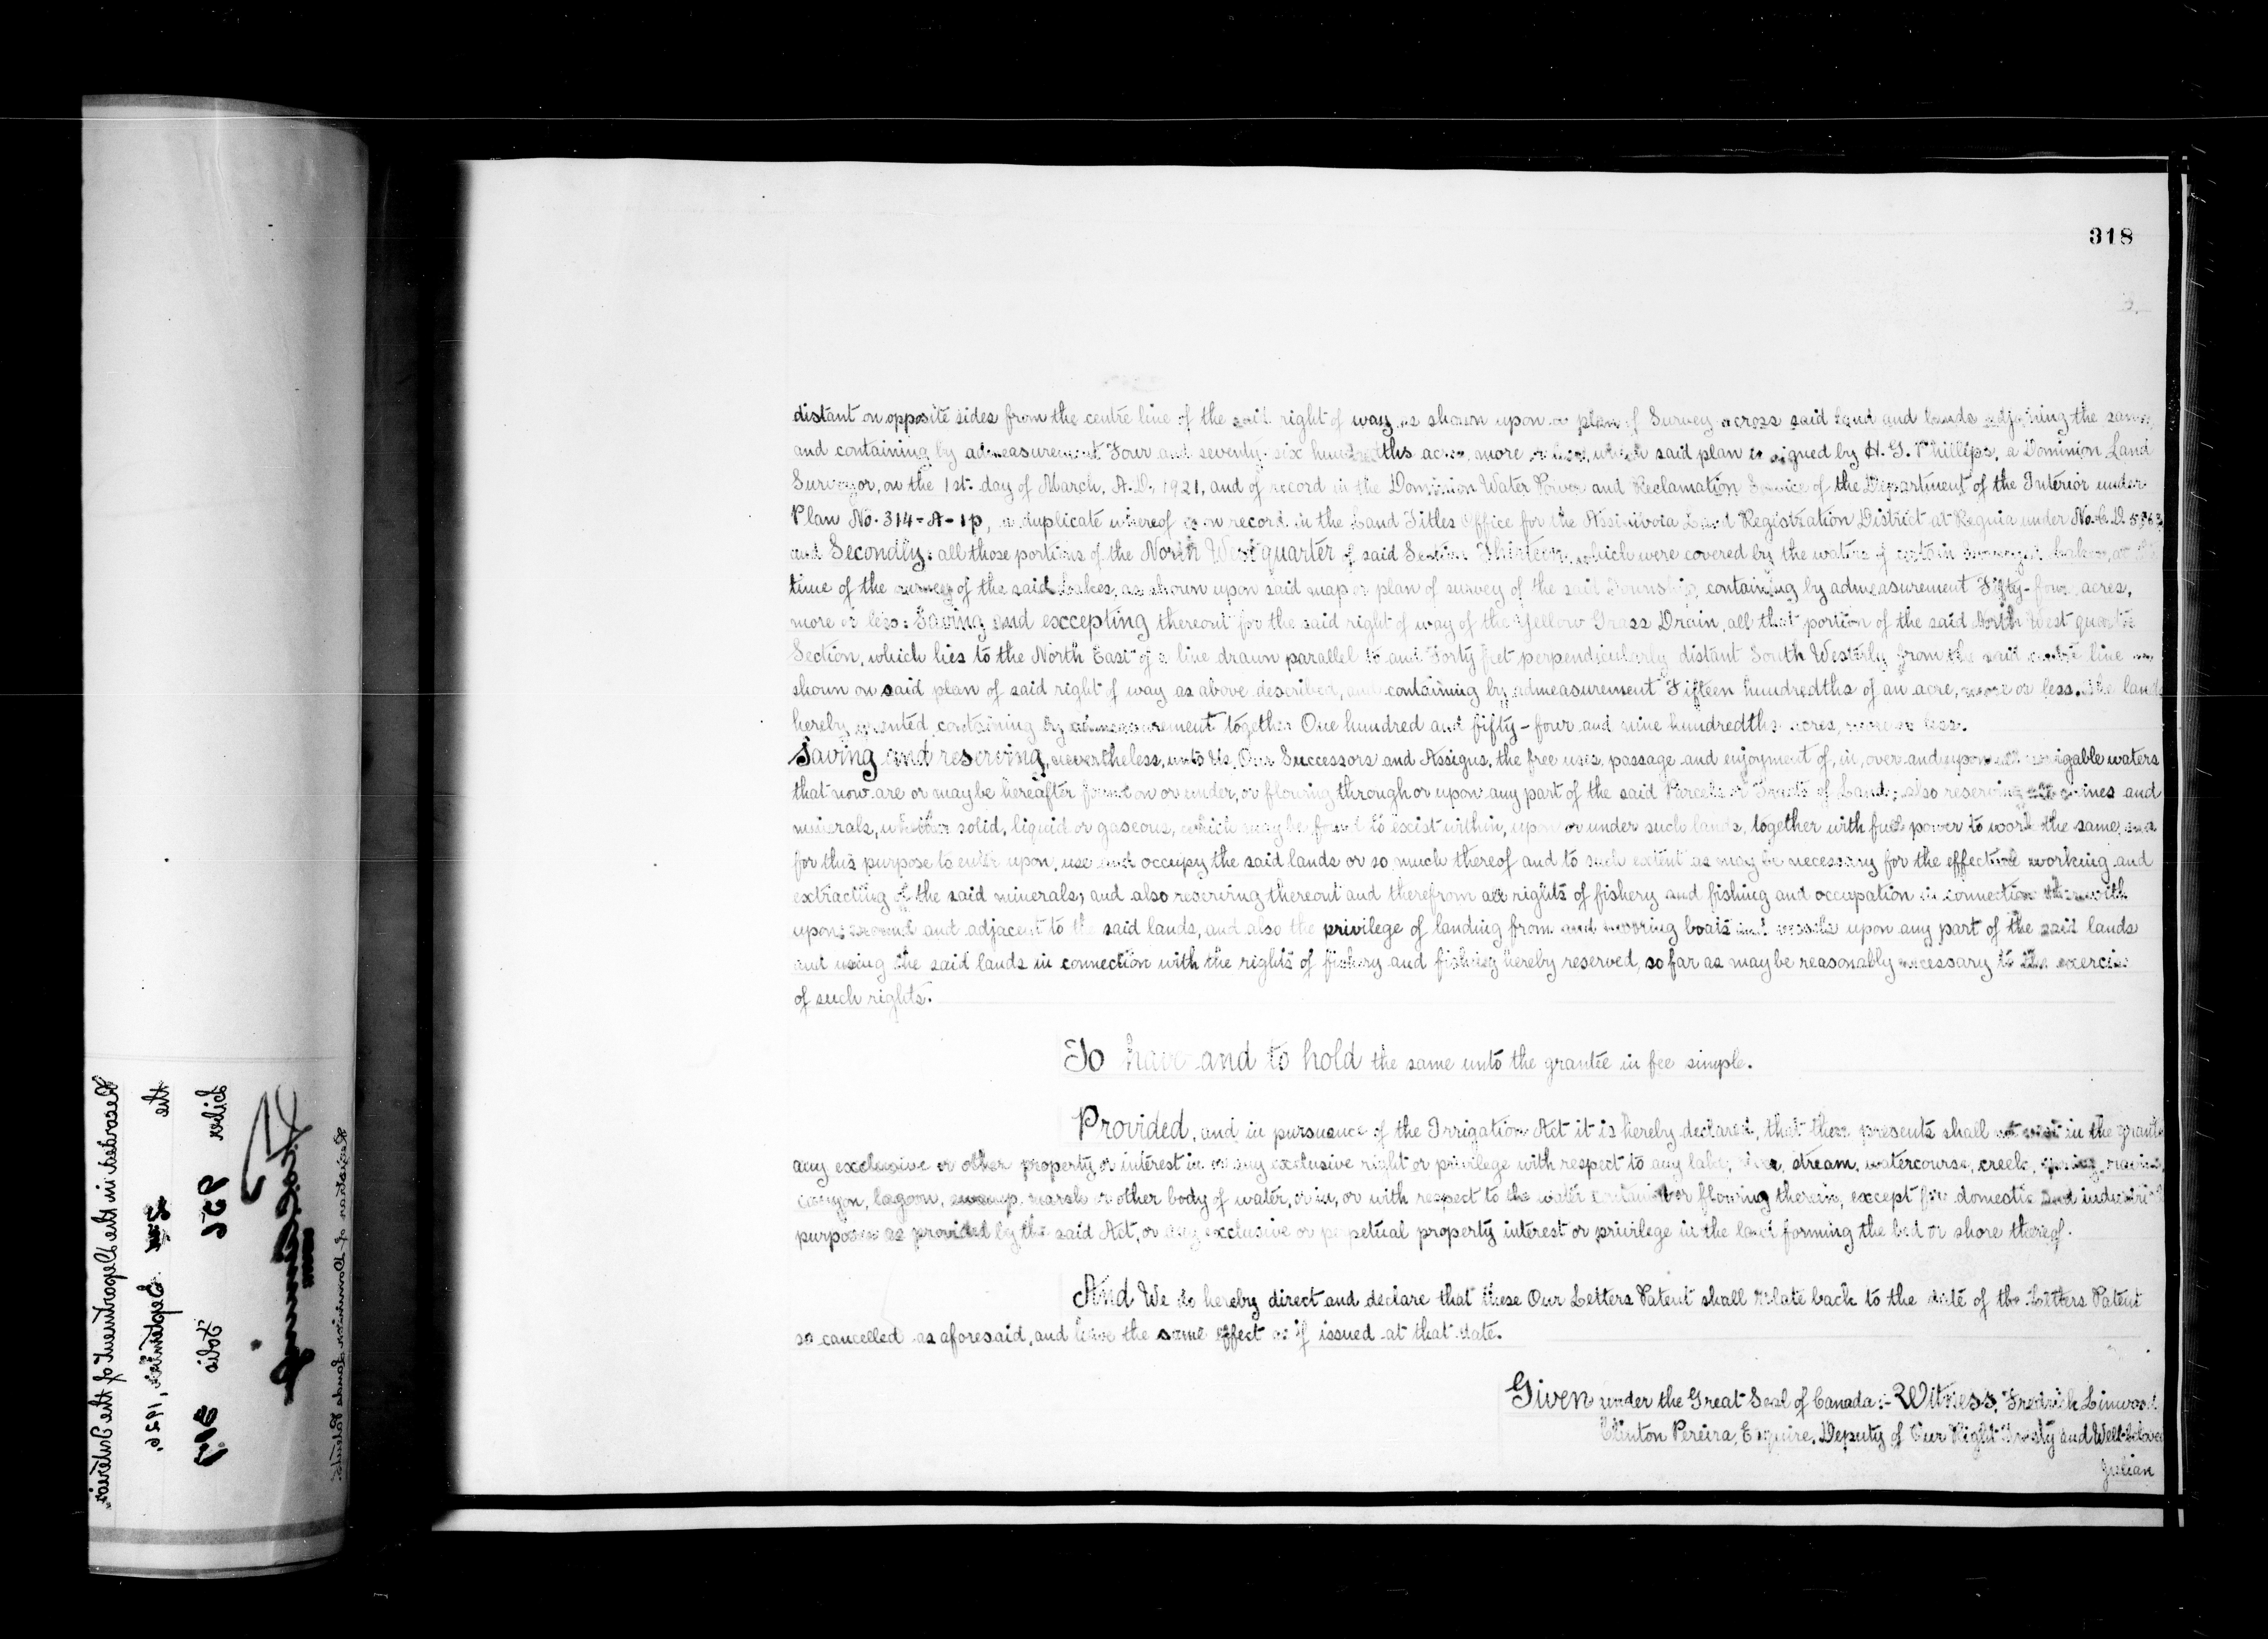 318
3.
distant on opposite sides from the centre line of the said right of way as shown upon a plan of Survey across said land and lands adjoining the same,
and containing by admeasurement Four and seventy-six hundredths acres, more or less, which said plan is signed by H. G. Phillips, a Dominion Land
Surveyor, on the 1st. day of March, A.D. 1921, and of record in the Dominion Water Power and Reclamation Service of the Department of the Interior under
Plan No. 314-A-1p, a duplicate whereof is on record in the Land Titles Office for the Assiniboia Land Registration District at Reguia under No.
and Secondly: all those portions of the North West quarter of said Section Thirteen, which were covered by the waters of certain lakes, at the
time of the survey of the said Lakes, as shown upon said map or plan of survey of the said Township, containing by admeasurement Fifty-four acres,
more or less: Saving and excepting thereout for the said right of way of the Yellow Grass Drain, all that portion of the said North West quarter
Section, which lies to the North East of a line drawn parallel to and Forty feet perpendicularly distant South Westerly from the said centre line as
shown on said plan of said right of way as above described, and containing by admeasurement Fifteen hundredths of an acre, more or less. The lands
hereby granted, containing by admeasurement together One hundred and fifty-four and nine hundredths acres, more or less.
Saving and reserving, nevertheless, unto Us, Our Successors and Assigns, the free uses, passage and enjoyment of, in, over and upon all navigable waters
that now are or may be hereafter found on or under, or flowing through or upon any part of the said Parcels or Tracts of Land; also reserving all mines and
minerals, whether solid, liquid or gaseous, which may be found to exist within, upon or under such lands, together with full power to work the same, and
for this purpose to enter upon, use and occupy the said lands or so much thereof and to such extent as may be necessary for the effectual working and
extracting of the said minerals; and also reserving thereout and therefrom all rights of fishery and fishing and occupation in connection therewith
upon, around and adjacent to the said lands, and also the privilege of landing from and mooring boats and vessels upon any part of the said lands
and using the said lands in connection with the rights of fishery and fishing hereby reserved, so far as may be reasonably necessary to the exercise
of such rights.
To have and to hold the same unto the grantee in fee simple.
Provided, and in pursuance of the Irrigation Act it is hereby declared, that these presents shall not vest in the grantee
any exclusive or other property or interest in or any exclusive right or privilege with respect to any lake, river, stream, watercourse, creek, spring, ravine,
canyon, lagoon, swamp, marsh or other body of water, or in, or with respect to the water contained or flowing therein, except for domestic and industrial
purposes as provided by the said Act, or any exclusive or perpetual property interest or privilege in the land forming the bed or shore thereof.
And We do hereby direct and declare that these Our Letters Patent shall relate back to the date of the Letters Patent
so cancelled as aforesaid, and have the same effect as if issued at that date.
Given under the Great Seal of Canada:- Witness, Fredrick Linwood
Clinton Pereira, Esquire, Deputy of Our Right Trusty and Well-beloved
Julian
Recorded in the Department of the Interior
the 2nd September, 1926
Liber 956 Folio 317
Registrar of Dominion Lands Patents.